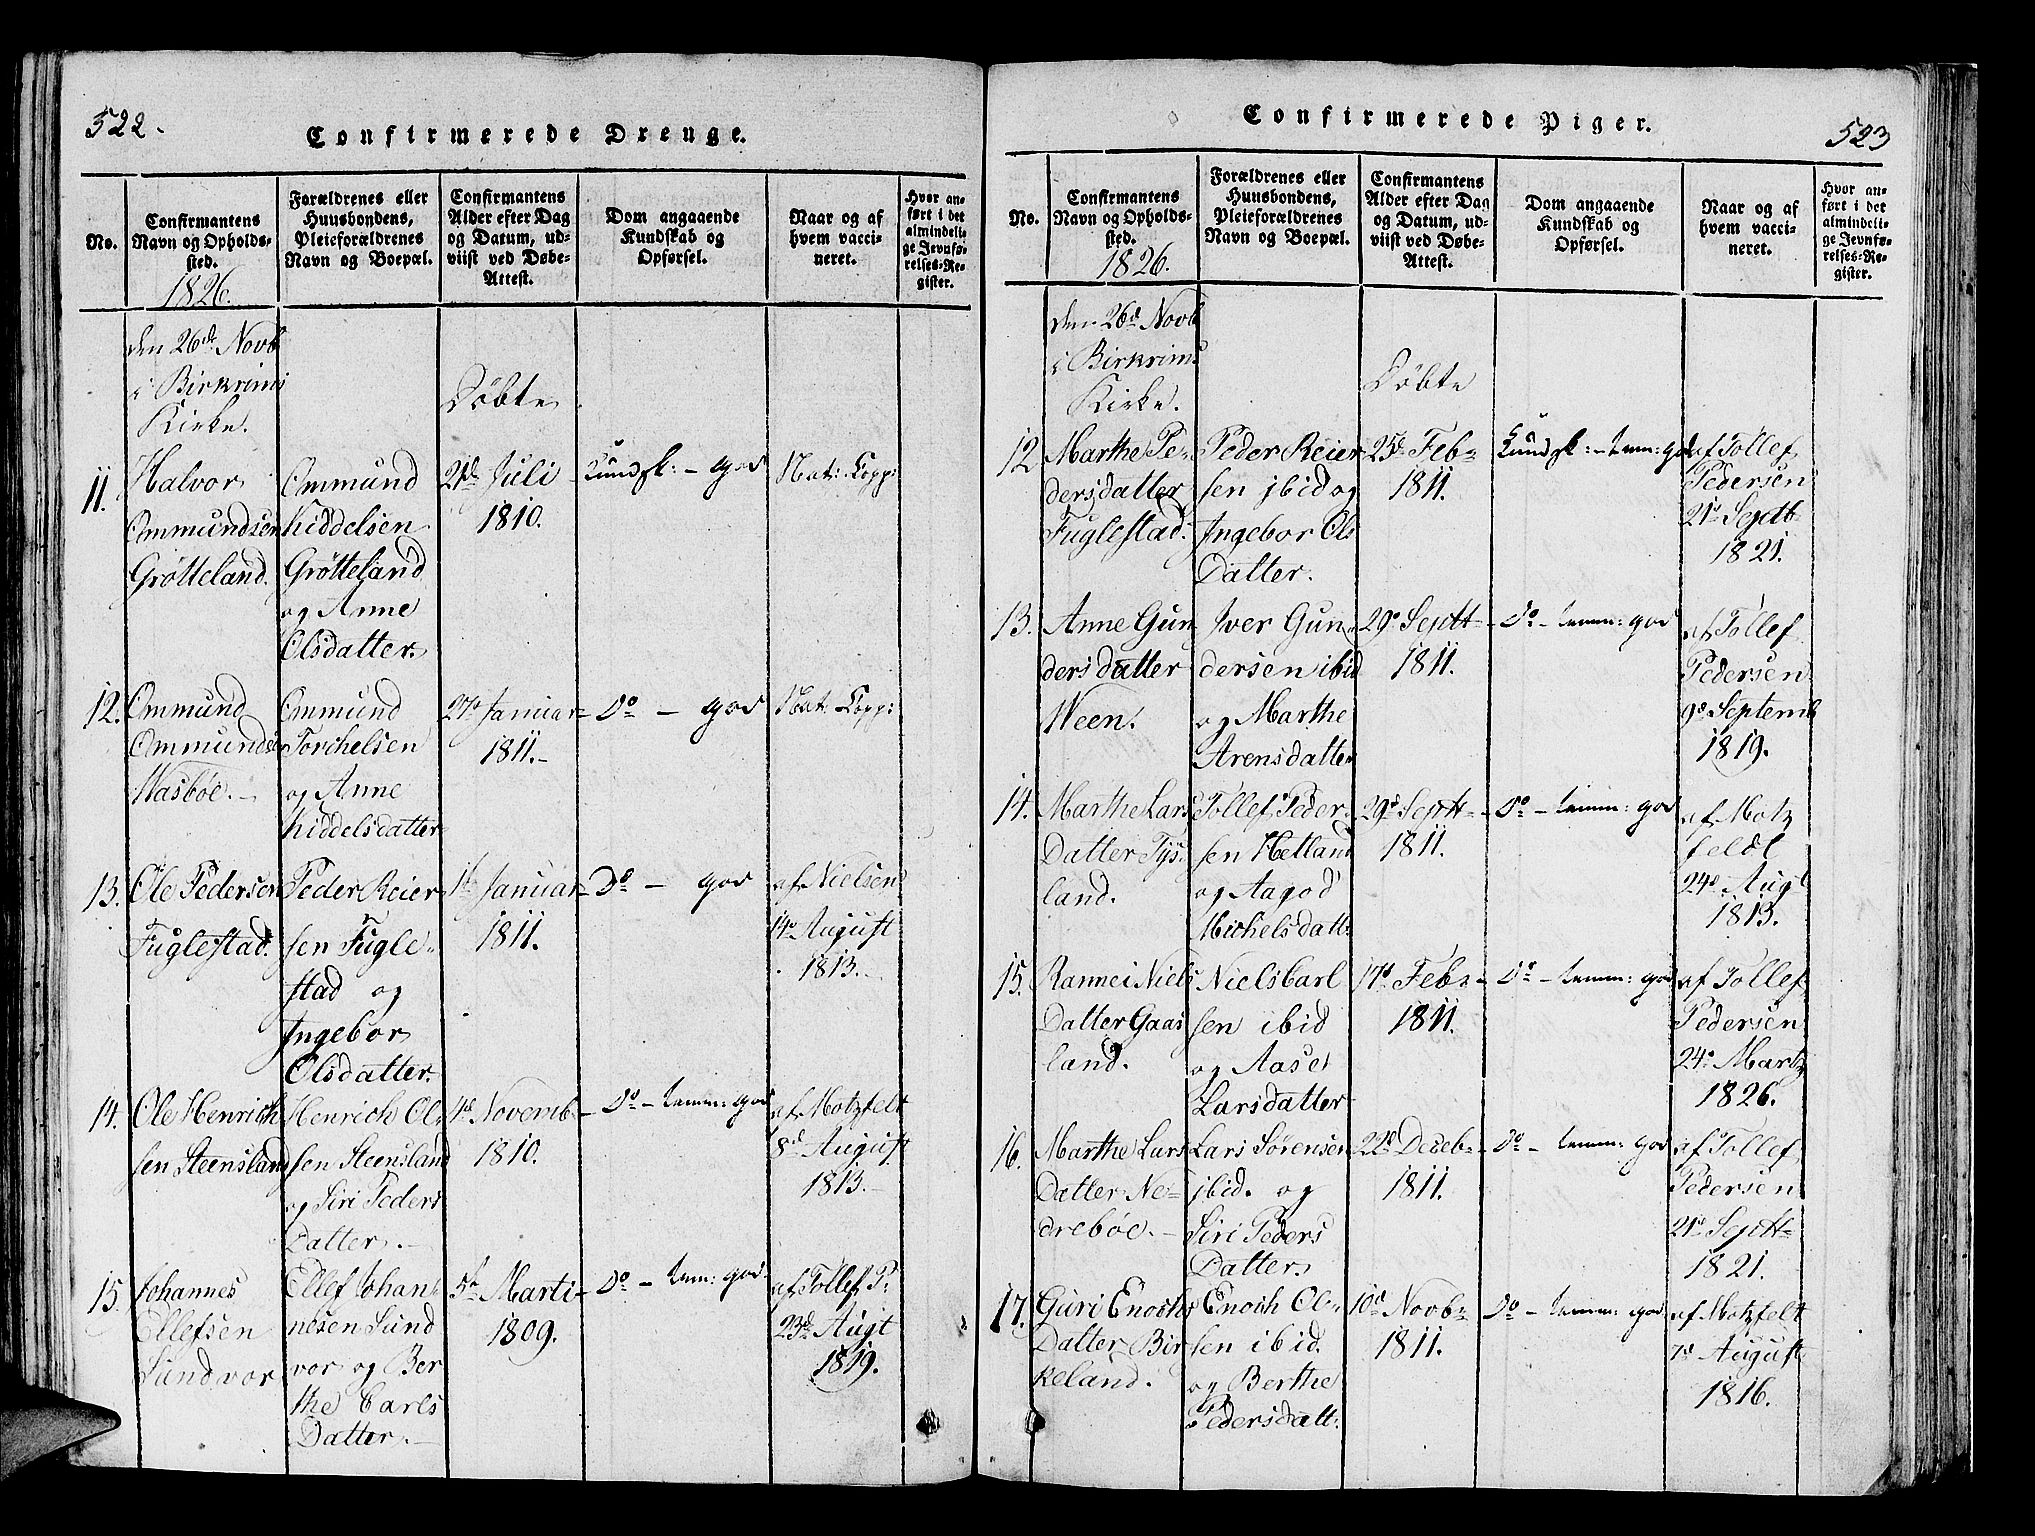 522.
Confirmerede Drenge.
No.
Confirmantens
Navn og Opholds-
sted.
1826.
Forældrenes eller
Huusbondens,
Pleieforældrenes
Navn og Boepæl.
Confirmantens
Alder efter Dag
og Datum, ud-
viist ved Døbe-
Attest.
Dom angaaende
Kundskab og
Opførsel.
Naar og af
hvem vacci-
neret.
Hvor an-
ført i det
almindeli-
ge Jevnfø-
relses-Re-
gister.
den 26de Novb
i Birkrims
Kirke.
Döbte
11.
Halvor
Ommundsen
Grötteland.
Ommund
Kiddelsen
Grötteland
og Anne
Olsdatter.
21de Juli
1810.
Kundsk: - god
Nat: Kopp:
12.
Ommund
Ommunds
Wasböe.
Ommund
Torchelsen
og Anne
Kiddelsdatter
27de Januar
1811.
Do - god
Nat: Kopp:
13.
Ole Pedersen
Fuglestad.
Peder Reier
sen Fugle-
stad og
Ingebor
Olsdatter.
1ste Januar
1811.
Do - god
af Nielsen
14de August
1813.
14.
Ole Henrich
sen Steensland
Henrich Ol-
sen Steensland
og Siri Peders
Datter.
4de Novemb
1810.
Do - temm: god
af Motzfelt
8de August
1813.
15.
Johannes
Ellefsen
Sundvor
Ellef Johan-
nesen Sund
vor og Ber
the Carls
Datter.
5te Marti
1809.
Do - tem: god
af Tollef P:
23de Augt
1819.
Confirmerede Piger.
523
No.
Confirmantens
Navn og Opholds-
sted.
1826.
Forældrenes eller
Huusbondens,
Pleieforældrenes
Navn og Boepæl.
Confirmantens
Alder efter Dag
og Datum, ud-
viist ved Døbe-
Attest.
Dom angaaende
Kundskab og
Opførsel.
Naar og af
hvem vacci-
neret.
Hvor an-
ført i det
almindeli-
ge Jevnfø-
relses-Re-
gister.
den 26de Novb
i Birkrims
Kirke.
Döbte
12
Marthe Pe-
dersdatter
Fuglestad.
Peder Reier
sen ibid og
Ingebor Ols
Datter.
25de Feb
1811.
Kundsk: - temm: god
af Tollef
Pedersen
21de Septb
1821.
13.
Anne Gun
dersdatter
Ween.
Iver Gun-
dersen ibid
og Marthe
Arensdatter
29de Septt
1811.
Do - temm: god
af Tollef
Pedersen
9de Septemb
1819.
14.
Marthe Lars
Datter Tjs-
land.
Tollef Peder-
sen Hetland
og Aagod
Michelsdatt:
29de Septt
1811.
Do - temm: god
af Motz
feldt
24de Augt
1813.
15.
Rannei Niels
Datter Gaas
land.
Niels Carl
sen ibid
og Aase
Larsdatter
17de Feb
1811.
Do - temm: god
af Tollef
Pedersen
24de Marti
1826.
16.
Marthe Lars
Datter Ne-
dreböe.
Lars Sörensen
ibid. og
Siri Peders
Datter.
22de Deceb
1811.
Do - temm: god
af Tollef
Pedersen
21de Septt
1821.
17.
Guri Enochs
Datter Bir
keland.
Enoch Ol-
sen ibid.
og Berthe
Pedersdatt:
10de Novb
1811.
Do - temm: god
af Motzfelt
7de August
1816.